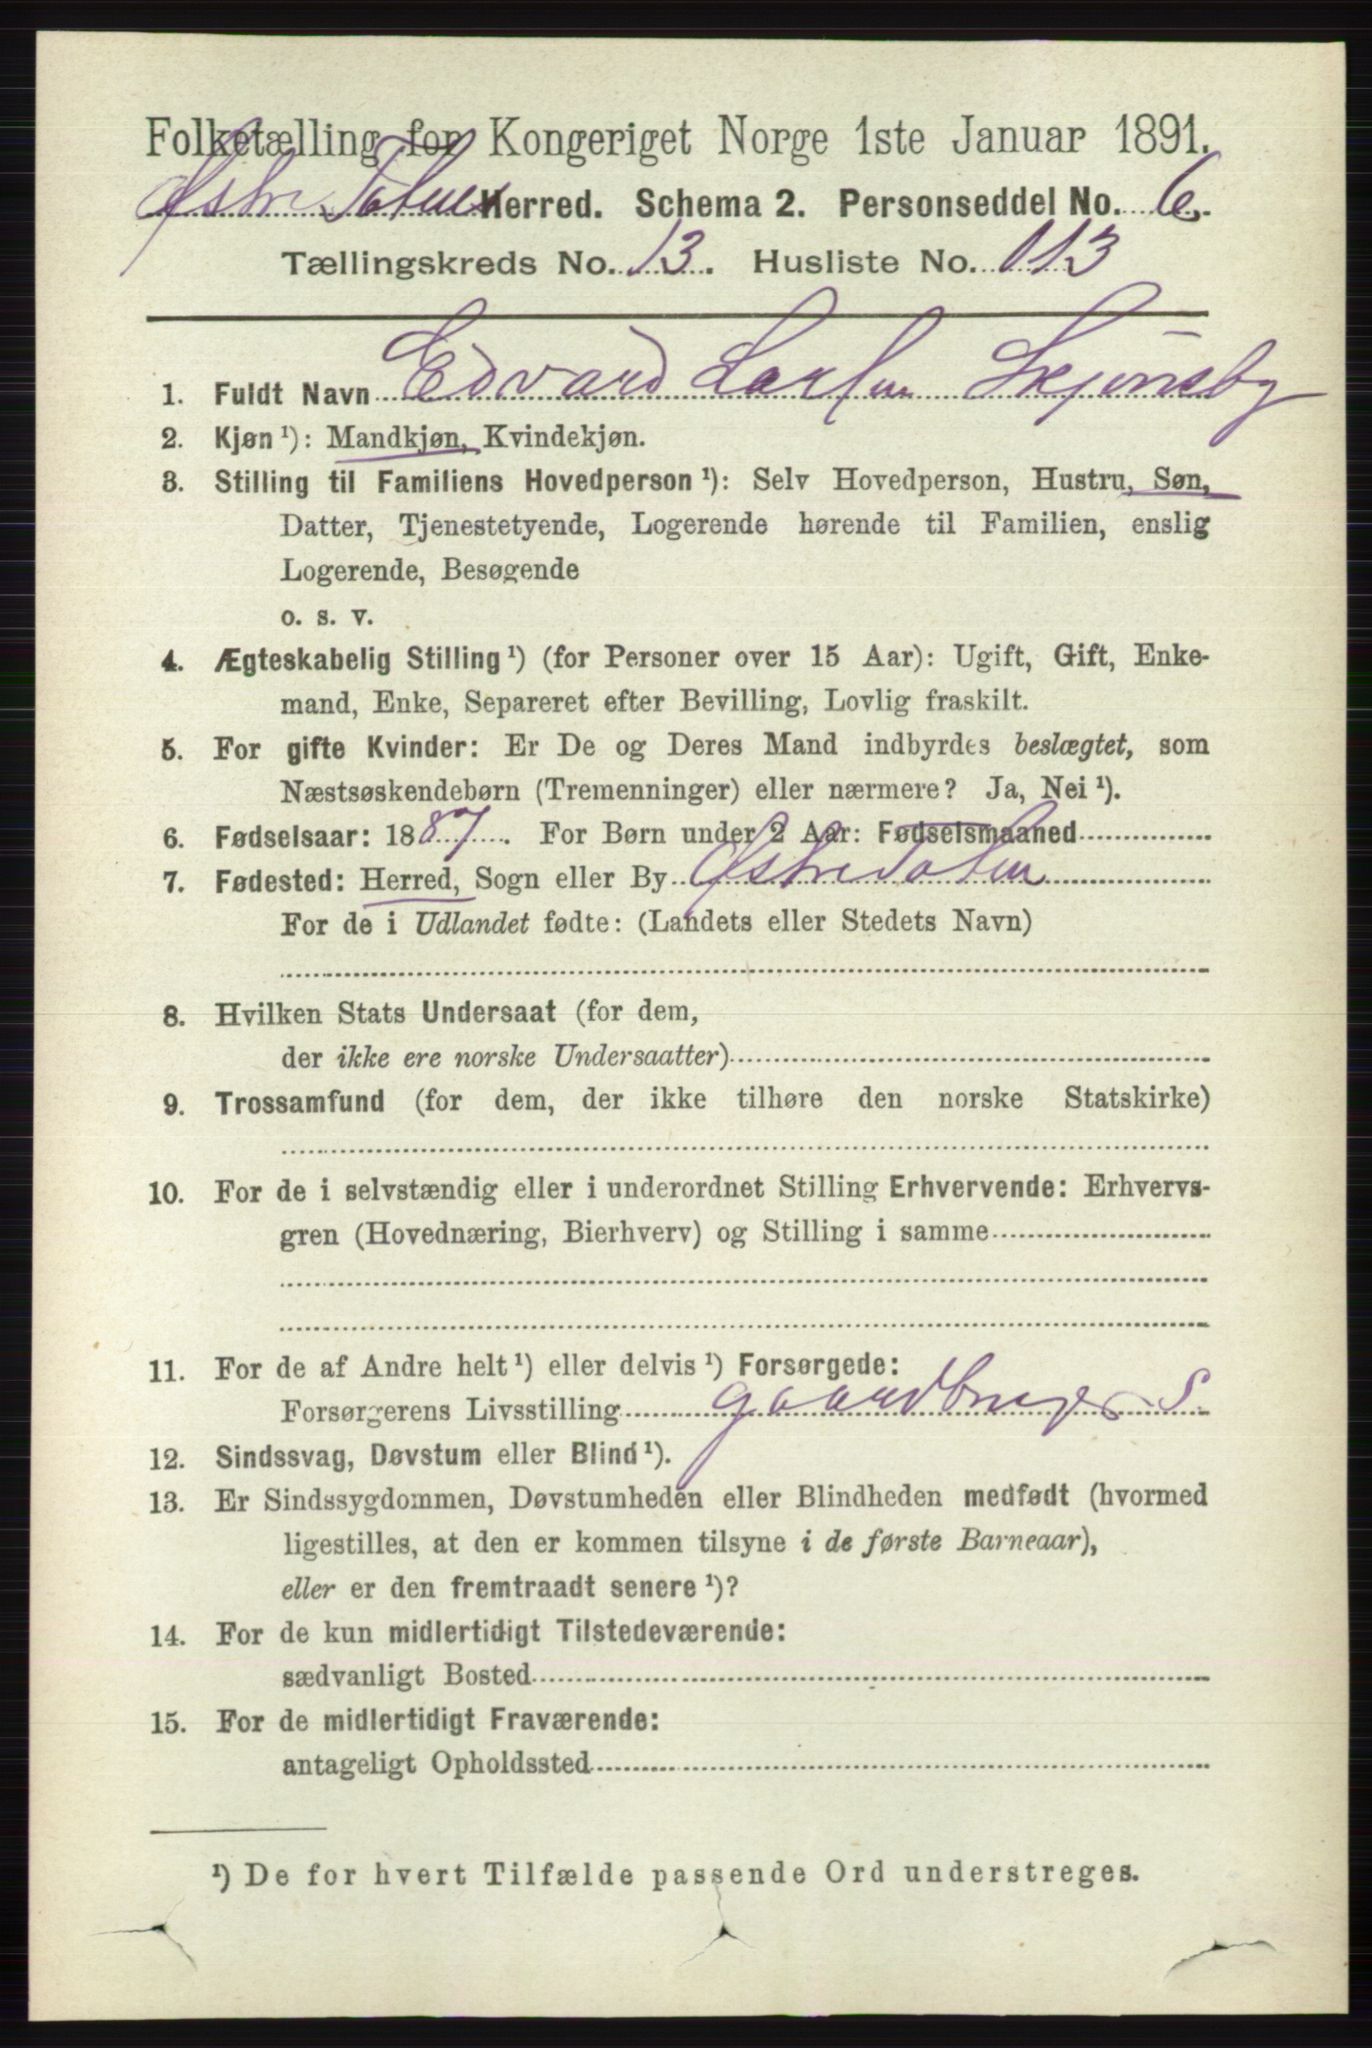 Folketælling for Kongeriget Norge 1ste Januar 1891.
Østre Totens Herred. Schema 2. Personseddel No. 6.
Tællingskreds No. 13. Husliste No. 113
1. Fuldt Navn Edvard Larsen Skjønsby
2. Kjøn ¹): Mandkjøn, Kvindekjøn.
3. Stilling til Familiens Hovedperson ¹): Selv Hovedperson, Hustru, Søn,
Datter, Tjenestetyende, Logerende hørende til Familien, enslig
Logerende, Besøgende
o. s. v.
4. Ægteskabelig Stilling ¹) (for Personer over 15 Aar): Ugift, Gift, Enke-
mand, Enke, Separeret efter Bevilling, Lovlig fraskilt.
5. For gifte Kvinder: Er De og Deres Mand indbyrdes beslægtet, som
Næstsøskendebørn (Tremenninger) eller nærmere? Ja, Nei ¹).
6. Fødselsaar: 1887. For Børn under 2 Aar: Fødselsmaaned
7. Fødested: Herred, Sogn eller By Østre Toten
For de i Udlandet fødte: (Landets eller Stedets Navn)
8. Hvilken Stats Undersaat (for dem,
der ikke ere norske Undersaatter)
9. Trossamfund (for dem, der ikke tilhøre den norske Statskirke)
10. For de i selvstændig eller i underordnet Stilling Erhvervende: Erhvervs-
gren (Hovednæring, Bierhverv) og Stilling i samme
11. For de af Andre helt ¹) eller delvis ¹) Forsørgede:
Forsørgerens Livsstilling gaardbruger S
12. Sindssvag, Døvstum eller Blind ¹).
13. Er Sindssygdommen, Døvstumheden eller Blindheden medfødt (hvormed
ligestilles, at den er kommen tilsyne i de første Barneaar),
eller er den fremtraadt senere ¹)?
14. For de kun midlertidigt Tilstedeværende:
sædvanligt Bosted
15. For de midlertidigt Fraværende:
antageligt Opholdssted
¹) De for hvert Tilfælde passende Ord understreges.